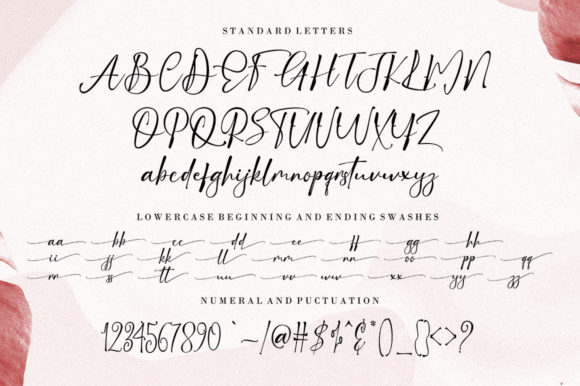 STANDARD LETTERS
ABCDEFGHIJKLMN
OPQRSTUVWXYZ
abcdefghijklmnopqrstuvwxyz
LOWERCASE BEGINNING AND ENDING SWASHES
aa bb cc dd ee ff gg hh
ii jj kk ll mm nn oo pp qq
rr ss tt uu vv ww xx yy zz
NUMERAL AND PUCTUATION
1234567890`~!@#$%^&*()_{}<>?